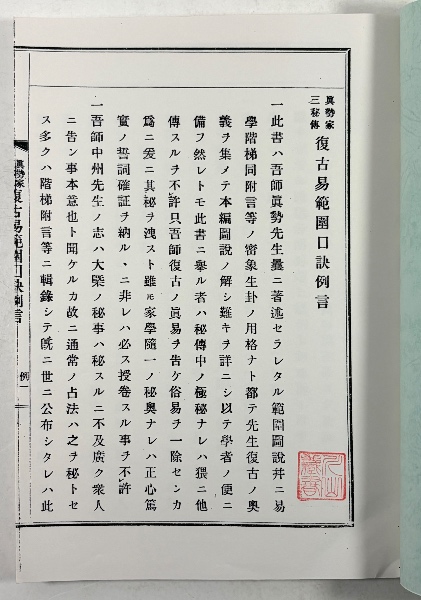 眞勢家
三秘傳
復古易範圍口訣例言
一此書ハ吾師眞勢先生曩ニ著述セラレタル範圍圖說幷ニ易
學階梯同附言等ノ密象生卦ノ用格ナト都テ先生復古ノ奥
義ヲ集メテ本編圖說ノ解シ難キヲ詳ニシ以テ學者ノ便ニ
備フ然レトモ此書ニ擧ル者ハ秘傳中ノ極秘ナレハ猥ニ他
傳スルヲ不許只吾師復古ノ眞易ヲ吿ケ俗易ヲ一除センカ
爲ニ爰ニ其秘ヲ洩スト雖𪜈家學隨一ノ秘奥ナレハ正心篤
實ノ誓詞確証ヲ納ル丶ニ非レハ必ス授卷スル事ヲ不許
一吾師中州先生ノ志ハ大槩ノ秘事ハ秘スルニ不及廣ク衆人
ニ吿ン事本意也ト聞ケルカ故ニ通常ノ占法ハ之ヲ秘トセ
ス多クハ階梯附言等ニ輯錄シテ旣ニ世ニ公布シタレハ此
眞勢家復古易範圍口訣例言
例一